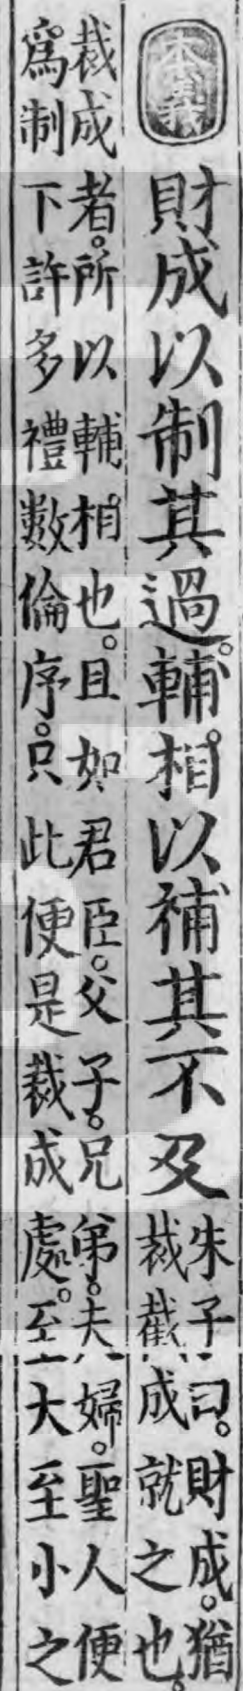 本義
財成以制其過。輔相以補其不及
朱子曰。財成。猶
裁截成就之也。
裁成者。所以輔相也。且如君臣。父子。兄弟。夫婦。聖人便
爲制下許多禮數倫序。只此便是裁成處。至大至小之